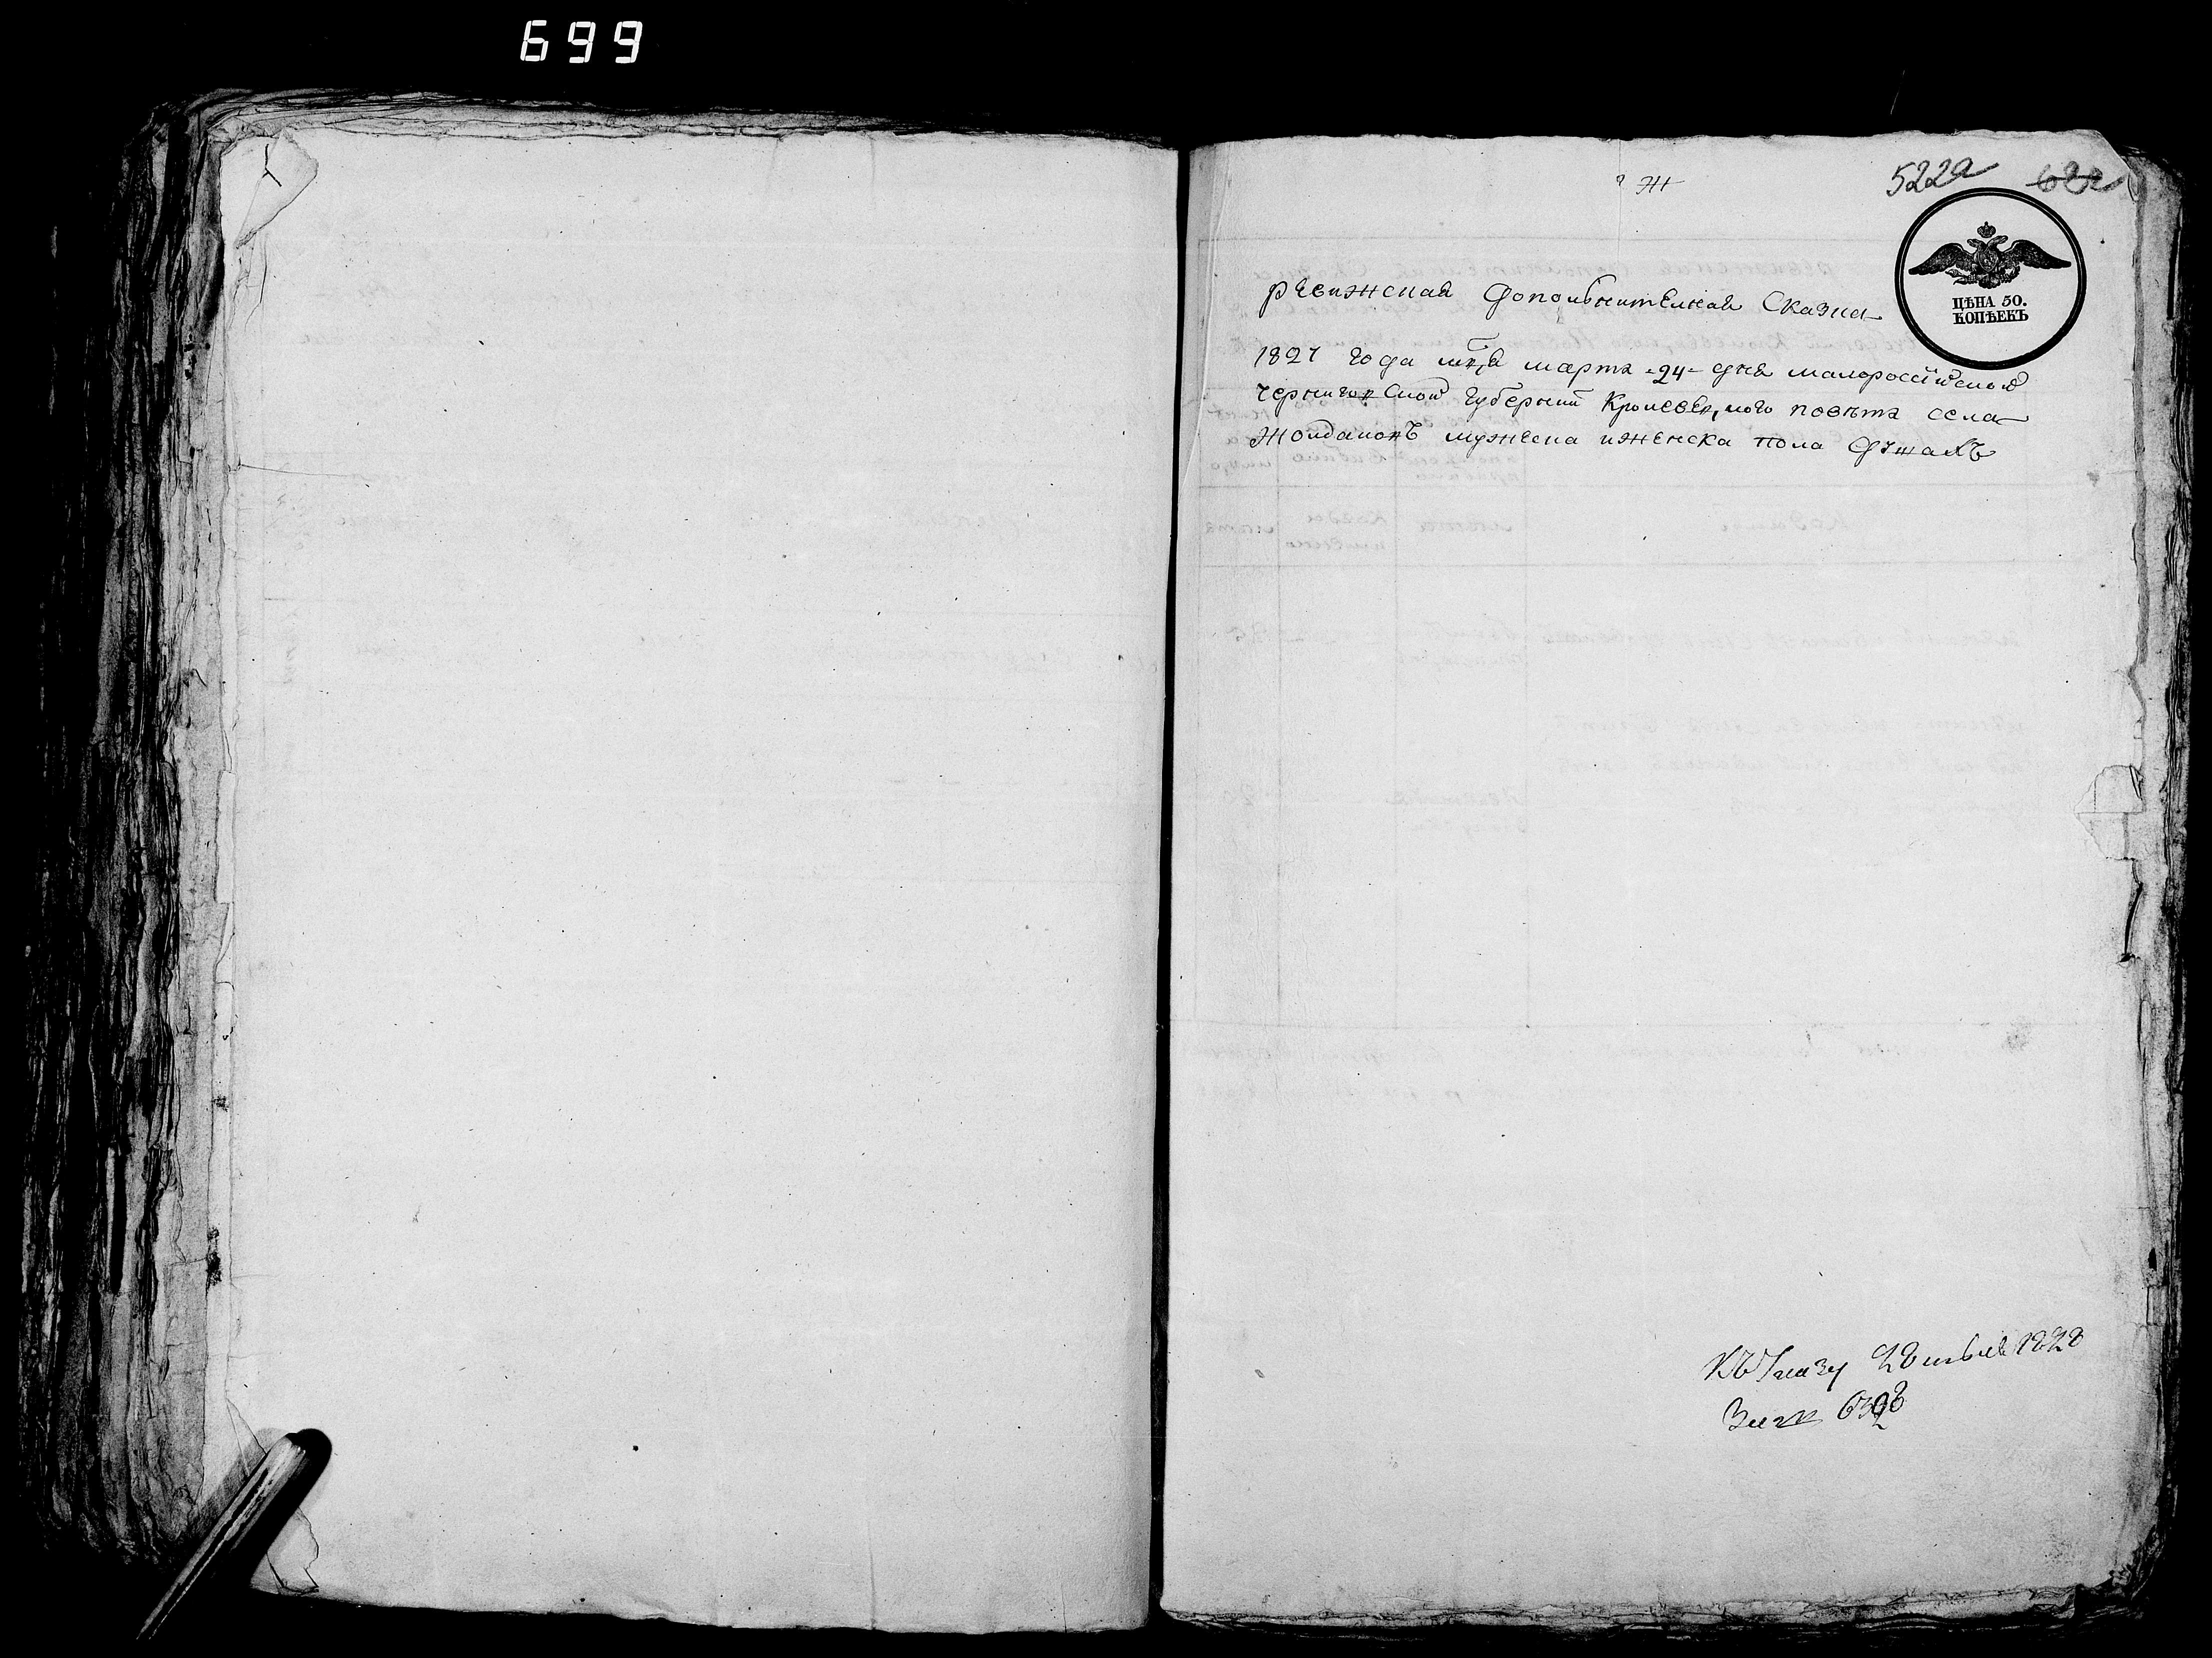 699
Ж
522а
622
ЦѢНА 50.
КОПѢЕКЪ
Ревижская дополънителная Сказка
1827 года мца марта -24- дня малороссійской
Черниговской губерний Кролевецкого повѣта села
Жолдаковъ мужеска иженска пола душахъ
Къ Указу 28 1828
6398